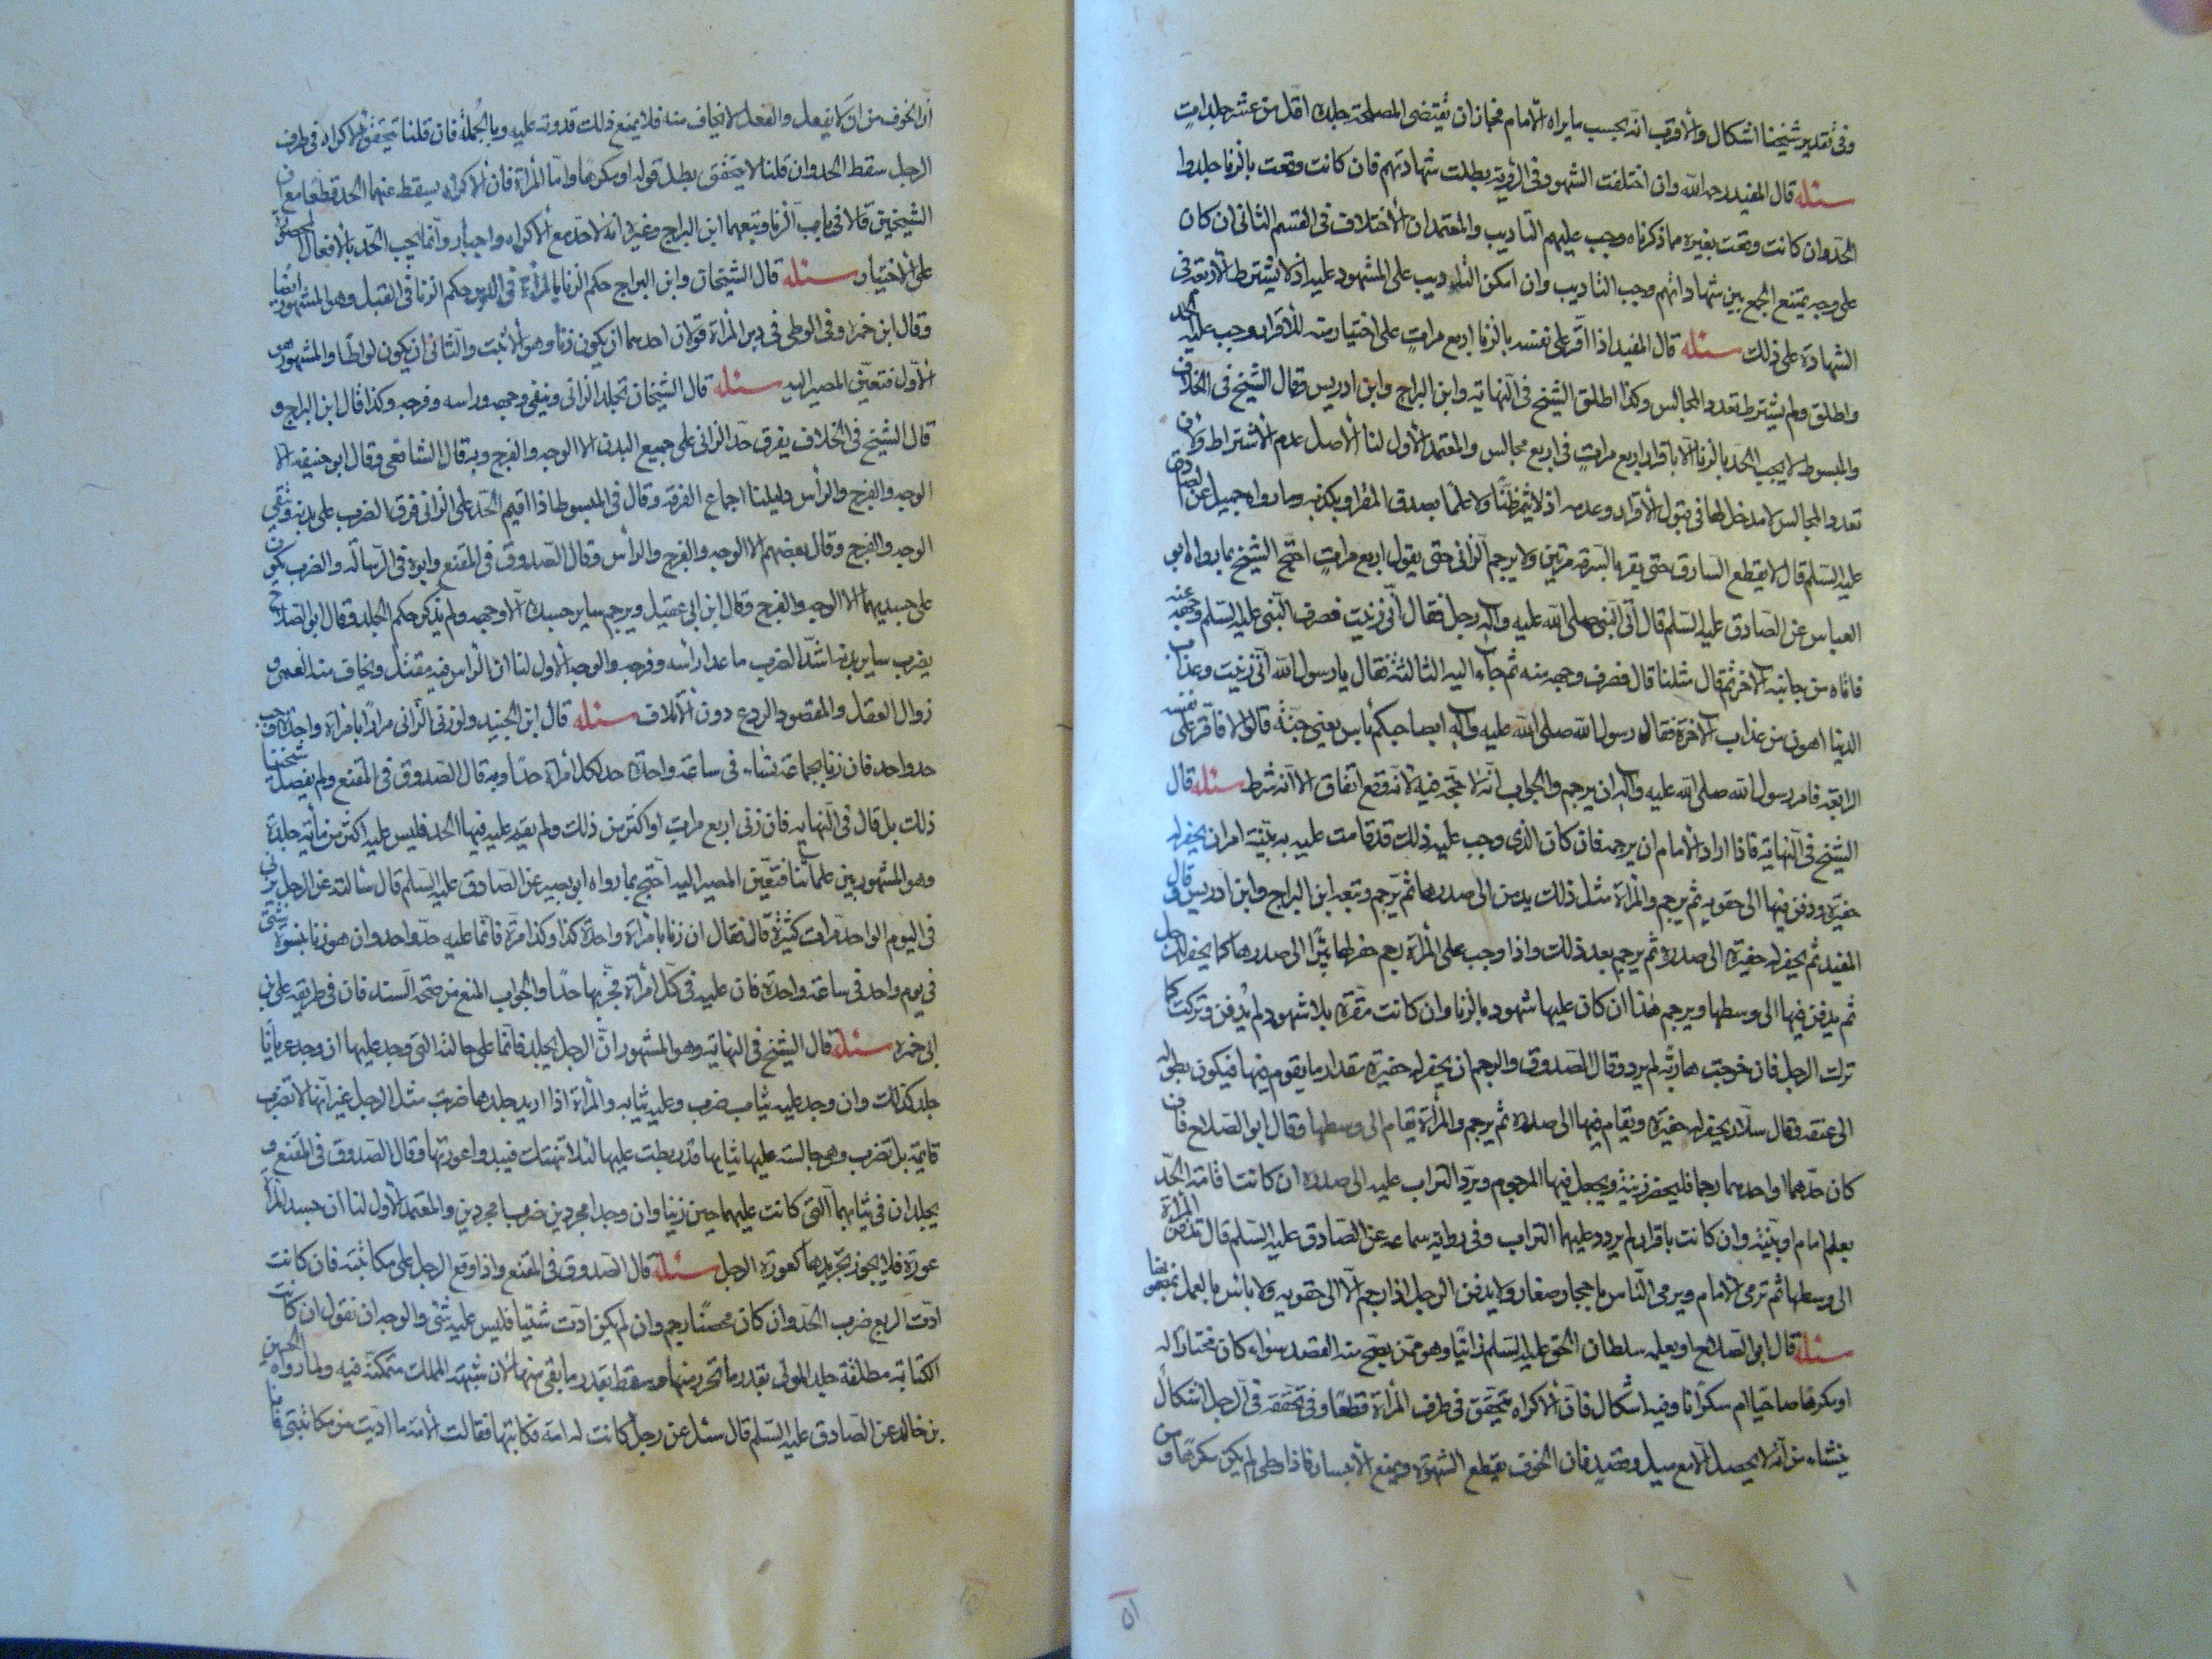 وفى تقدير شيخنا اشكال والاقرب انه بحسب ما يراه الامام فجاز ان تقتضى المصلحة جلده اقل من عشر جلدات
مسئله قال المفيد رحمه الله وان اختلفت الشهود فى الرؤية بطلت شهادتهم فان كانت وقعت بالزنا جلدوا
الحد وان كانت وقعت بغيره مما ذكرناه وجب عليهم التاديب والمعتمد ان الاختلاف فى القسم الثانى ان كان
على وجه يمتنع الجمع بين شهاداتهم وجب التاديب وان امكن التاديب على المشهود عليه اذ لا يشترط الاربعة فى
الشهادة على ذلك مسئله قال المفيد اذا اقر على نفسه بالزنا اربع مرات على اختيار منه للاقرار وجب عليه الحد
واطلق ولم يشترط تعدد المجالس وكذا اطلق الشيخ فى النهاية وابن البراج وابن ادريس وقال الشيخ فى الخلاف
والمبسوط لا يجب الحد بالزنا الا باقرار اربع مرات فى اربع مجالس والمعتمد الاول لنا الاصل عدم الاشتراط ولان
تعدد المجالس لا مدخل لها فى قبول الاقرار وعدمه اذ لا يثمر ظنا ولا علما بصدق المقر او بكذبه وما رواه جميل عن الصادق
عليه السلم قال لا يقطع السارق حتى يقر بالسرقة مرتين ولا يرجم الزانى حتى يقول اربع مرات احتج الشيخ بما رواه ابو
العباس عن الصادق عليه السلم قال اتى النبى صلى الله عليه واله رجل فقال انى زنيت فصرف النبى عليه السلم وجهه عنه
فاتاه من جانبه الاخر ثم قال مثلنا قال فصرف وجهه منه ثم جاء اليه الثالثة فقال يا رسول الله انى زنيت وعذاب
الدنيا اهون من عذاب الاخرة فقال رسول الله صلى الله عليه واله ابصاحبكم باس يعنى جنة قالوا لا فاقر على نفسه
الرابعة فامر رسول الله صلى الله عليه واله ان يرجم والجواب انه لا حجة فيه لانه وقع اتفاق الا انه شرط مسئله قال
الشيخ فى النهاية فاذا اراد الامام ان يرجمه فان كان الذى وجب عليه ذلك قد قامت عليه به بينة امر ان يحفر له
حفيرة ودفن فيها الى حقويه ثم يرجم والمراة مثل ذلك يدفن الى صدرها ثم يرجم وتبعه ابن البراج وابن ادريس وقال
المفيد ثم يحفر له حفيرة الى صدره ثم يرجم بعد ذلك واذا وجب على المراة رجم حفر لها بئرا الى صدرها كما يحفر للرجل
ثم يدفن فيها الى وسطها ويرجم هذا ان كان عليها شهود بالزنا وان كانت مقرة بلا شهود لم يدفن وتركت كما
ترك الرجل فان خرجت هاربة لم يرد وقال الصدوق والرجم ان يحفر له حفيرة مقدار ما يقوم فيها فيكون بطوله
الى عنقه وقال سلار يحفر له حفيرة ويقام فيها الى صدره ثم يرجم والمراة يقام الى وسطها وقال ابو الصلاح فان
كان حدهما او احدهما رجما فليحفر زبية ويجعل فيها المرجوم ويرد التراب عليه الى صدره ان كانت قامة الحد
بعلم امام او بينة وان كانت باقرار لم يردد عليهما التراب وفى رواية سماعة عن الصادق عليه السلم قال تدفن المراة
الى وسطها ثم ترمى الامام ويرمى الناس باحجار صغار ولا يدفن الرجل اذا رجم الا الى حقويه ولا باس بالعمل
مسئله قال ابو الصلاح او يعلمه سلطان الحق عليه السلم زانيا وهو ممن يصح منه القصد سواء كان مختارا له
او مكرها صاحيا ام سكرانا وفيه اشكال فان الاكراه يتحقق فى طرف المراة قطعا وفى تحققه فى الرجل اشكال
ينشاء من انه لا يحصل الا مع ميل وقصد فان الخوف يقطع الشهوة ويمنع الانبساط فاذا وطى لم يكن مكرها ومن
ان الخوف من ان لا يفعل والفعل لا يخاف منه فلا يمنع ذلك قدرته عليه وبالجملة فان قلنا بتحقق الاكراه فى طرف
الرجل سقط الحد وان قلنا لا يتحقق بطل قوله او مكرها واما المراة فان الاكراه يسقط عنهما الحد قطعا مع ان
الشيخين قالا فى باب الزنا وتبعهما ابن البراج وغيره انه لا حد مع الاكراه واجبار وانما يجب الحد بالافعال المحظورة
على الاختيار مسئله قال الشيخان وابن البراج حكم الزنا بالمراة فى الدبر حكم الزنا فى القبل وهو المشهور ايضا
وقال ابن حمزه وفى الوطى فى دبر المراة قولان احدهما ان يكون زنا وهو الاثبت والثانى ان يكون لواطا والمشهور هو
الاول فتعين المصير اليه مسئله قال الشيخان تجلد الزانى ويتقى وجهه وراسه وفرجه وكذا قال ابن البراج و
قال الشيخ فى الخلاف يفرق حد الزانى على جميع البدن الا الوجه والفرج وبه قال الشافعى وقال ابو حنيفة الا
الوجه والفرج والراس دليلنا اجماع الفرقة وقال فى المبسوط اذا اقيم الحد على الزانى فرق الضرب على بدنه ويتقى
الوجه والفرج وقال بعضهم الا الوجه والفرج والراس وقال الصدوق فى المقنع وابوه فى الرسالة والضرب يكون
على جسديهما الا الوجه والفرج وقال ابن ابى عقيل ويرجم ساير جسده الا وجهه ولم يذكر حكم الجلد وقال ابو الصلاح
يضرب ساير بدنه اشد الضرب ما عدا راسه وفرجه والوجه الاول لنا ان الراس فيه مقتل ويخاف منه العمى و
زوال العقل والمقصود الردع دون الاتلاف مسئله قال ابن الجنيد ولو زنى الزانى مرارا بامراة واحدة وجب
حد واحد فان زنا بجماعة نساء فى ساعة واحدة حد لكل امراة حدا وبه قال الصدوق فى المقنع ولم يفصل شيخنا
ذلك بل قال فى النهايه فان زنى اربع مرات او اكثر من ذلك ولم يقم عليه فيها الحد فليس عليه اكثر من مائة جلدة
وهو المشهور بين علمائنا فتعين المصير اليه احتج بما رواه ابو بصير عن الصادق عليه السلم قال سالته عن الرجل يزنى
فى اليوم الواحد مرات كثيرة قال فقال ان زنا بامراة واحدة كذا وكذا مرة فانما عليه حد واحد وان هو زنا بنسوة شتى
فى يوم واحد فى ساعة واحدة فان عليه فى كل امراة فجر بها حدا والجواب المنع من صحة السند فان فى طريقه على بن
ابى حمزه مسئلة قال الشيخ فى النهاية وهو المشهور ان الرجل يجلد قائما على حالته التى وجد عليها ان وجد عريانا
جلد كذلك وان وجد عليه ثياب ضرب وعليه ثيابه والمراة اذا اريد جلدها ضربت مثل الرجل غير انها لا تضرب
قايمة بل تضرب وهى جالسة عليها ثيابها قد ربطت عليها لئلا تنهتك فيبدوا عورتها وقال الصدوق فى المقنع و
يجلدان فى ثيابهما التى كانت عليهما حين زنيا وان وجدا مجردين ضربا مجردين والمعتمد الاول لنا ان جسد المراة
عورة فلا يجوز تجريدها كعورة الرجل مسئلة قال الصدوق فى المقنع واذا وقع الرجل على مكاتبته فان كانت
ادت الربع ضرب الحد وان كان محصنا رجم وان لم يكن ادت شيئا فليس عليه شئ والوجه ان نقول ان كانت
الكتابة مطلقة جلد المولى بقدر ما تحرر منها وسقط بقدر ما بقى منها لان شبهة الملك متمكنة فيه ولما رواه الحسين
بن خالد عن الصادق عليه السلم قال سئل عن رجل كانت له امة فكاتبها فقالت الامة ما اديت من مكاتبتى فانا